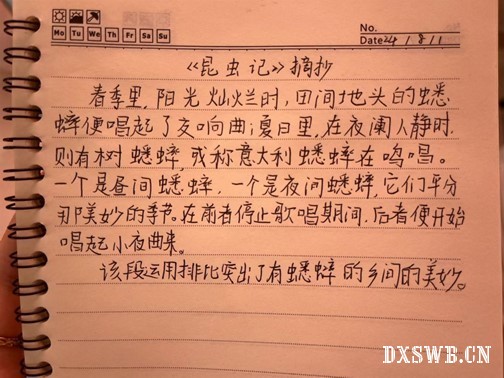 No.
Mo Tu We Th Fr Sa Su
Date 24/8/1
《昆虫记》摘抄
春季里,阳光灿烂时,田间地头的蟋
蟀便唱起了交响曲;夏日里,在夜阑人静时,
则有树蟋蟀,或称意大利蟋蟀在鸣唱。
一个是昼间蟋蟀,一个是夜间蟋蟀,它们平分
那美妙的季节。在前者停止歌唱期间,后者便开始
唱起小夜曲来。
该段运用排比突出了有蟋蟀的乡间的美妙。
DXSWB.CN